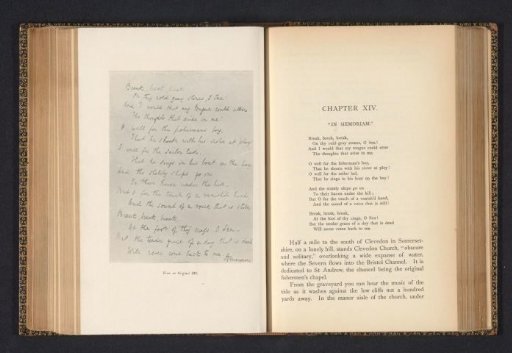 Break, break, break,
On thy cold gray stones, O Sea!
And I would that my tongue could utter
The thoughts that arise in me.
O well for the fisherman's boy,
That he shouts with his sister at play!
O well for the sailor lad,
That he sings in his boat on the bay
And the stately ships go on
To their haven under the hill,
But O for the touch of a vanish'd hand
And the sound of a voice that is still
Break, break, break
At the foot of thy crags O Sea!
But the tender grace of a day that is dead
Will never come back to me
From an Original MS.
CHAPTER XIV.
"IN MEMORIAM."
Break, break, break,
On thy cold grey stones, O Sea!
And I would that my tongue could utter
The thoughts that arise in me.
O well for the fisherman's boy,
That he shouts with his sister at play!
O well for the sailor lad,
That he sings in his boat on the bay!
And the stately ships go on
To their haven under the hill;
But O for the touch of a vanish'd hand,
And the sound of a voice that is still!
Break, break, break,
At the foot of thy crags, O Sea!
But the tender grace of a day that is dead
Will never come back to me.
Half a mile to the south of Clevedon in Somerset-
shire, on a lonely hill, stands Clevedon Church, "obscure
and solitary," overlooking a wide expanse of water,
where the Severn flows into the Bristol Channel. It is
dedicated to St Andrew, the chancel being the original
fishermen's chapel.
From the graveyard you can hear the music of the
tide as it washes against the low cliffs not a hundred
yards away. In the manor aisle of the church, under